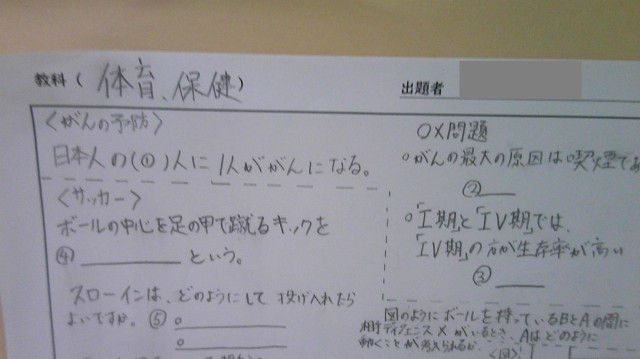 教科 ( 体育、保健 )
出題者
〈がんの予防〉
日本人の(①)人に1人ががんになる。
〈サッカー〉
ボールの中心を足の甲で蹴るキックを
④ という。
スローインは、どのようにして投げ入れたら
よいですか。⑤ o
o
○×問題
○がんの最大の原因は喫煙であ
②
○「I期」と「IV期」では、
「IV期」の方が生存率が高い
③
図のようにボールを持っているBとAの間に
相手ディフェンスXがいるとき、Aはどのように
動くことが考えられるか。